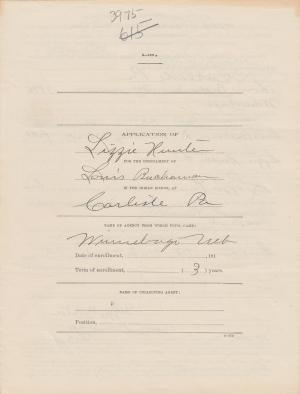 3975
615
APPLICATION OF
Lizzie Hunter
FOR THE ENROLLMENT OF
Louis Buchanan
IN THE INDIAN SCHOOL AT
Carlisle Pa
NAME OF AGENCY FROM WHICH PUPIL CAME:
Winnebago Neb
Date of enrollment, 191
Term of enrollment, (3) years.
NAME OF COLLECTING AGENT:
Position,